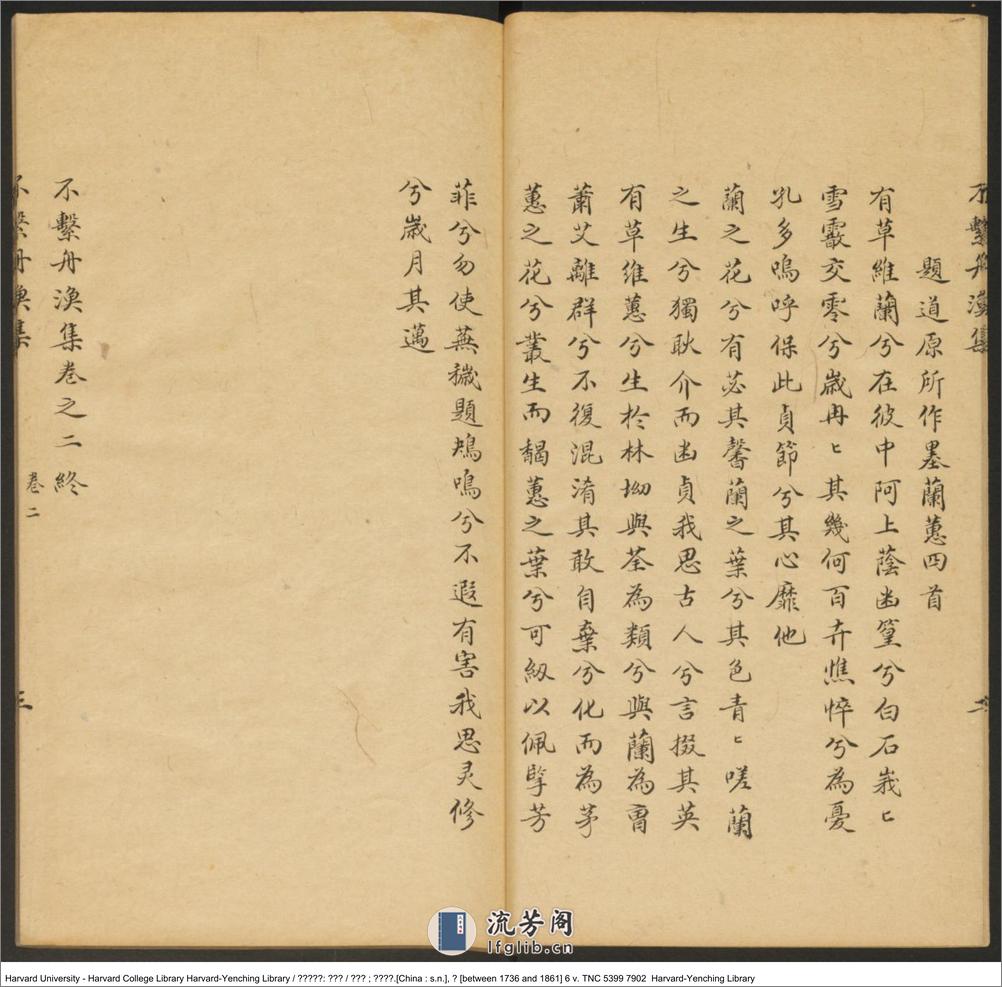 不繫舟漁集
二
題道原所作墨蘭蕙四首
有草維蘭兮在彼中阿上蔭幽篁兮白石峩〻
雪霰交零兮歲冉〻其幾何百卉憔悴兮為憂
孔多嗚呼保此貞節兮其心靡他
蘭之花兮有苾其馨蘭之葉兮其色青〻嗟蘭
之生兮獨耿介而幽貞我思古人兮言掇其英
有草維蕙兮生於林坳與荃為類兮與蘭為曺
蕭艾離群兮不復混淆其敢自棄兮化而為茅
蕙之花兮叢生而馤蕙之葉兮可紉以佩擥芳
菲兮勿使蕪穢題鴂鳴兮不遐有害我思灵修
兮歲月其邁
不繫舟漁集卷之二 終
不繫舟漁集
卷二
三
流芳阁
lfglib.cn
Harvard University - Harvard College Library Harvard-Yenching Library / ?????: ??? / ??? ; ????.[China : s.n.], ? [between 1736 and 1861] 6 v. TNC 5399 7902 Harvard-Yenching Library